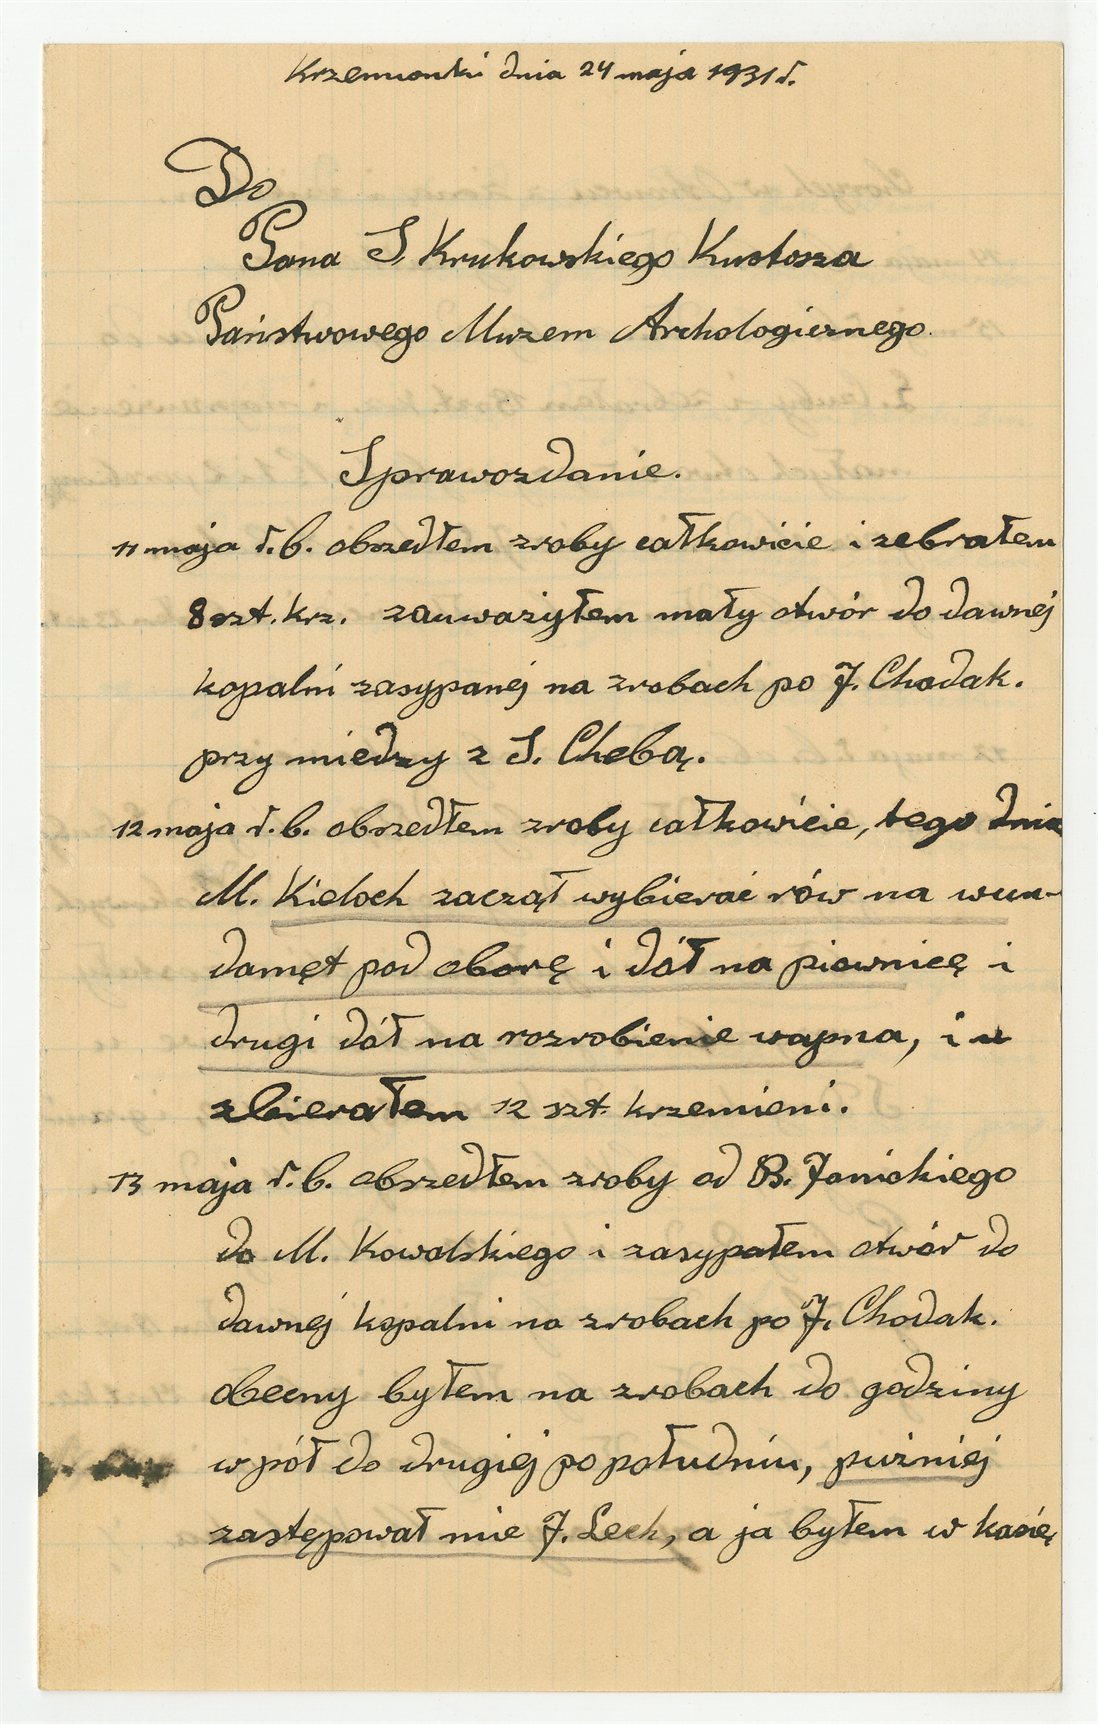 Krzemionki dnia 24 maja 1931 r.
Do
Pana S. Krukowskiego Kustosza
Państwowego Muzem Archologicznego.
Sprawozdanie.
11 maja r.b. obszedłem zroby całkowicie i zebrałem
8 szt. krz. zauważyłem mały otwór do dawnej
kopalni zasypanej na zrobach po J. Chodak.
przy miedzy z S. Chebą.
12 maja r.b. obszedłem zroby całkowicie, tego dnia
M. Kieloch zaczął wybierać rów na wun-
damęt pod oborę i dół na piewnicę i
drugi dół na rozrobienie wapna, i u
zbierałem 12 szt. krzemieni.
13 maja r.b. obszedłem zroby od B. Janickiego
do M. Kowalskiego i zasypałem otwór do
dawnej kopalni na zrobach po J. Chodak.
obecny byłem na zrobach do godziny
wpół do drugiej popołudniu, puźniej
zastępował mie J. Lech, a ja byłem w kasie